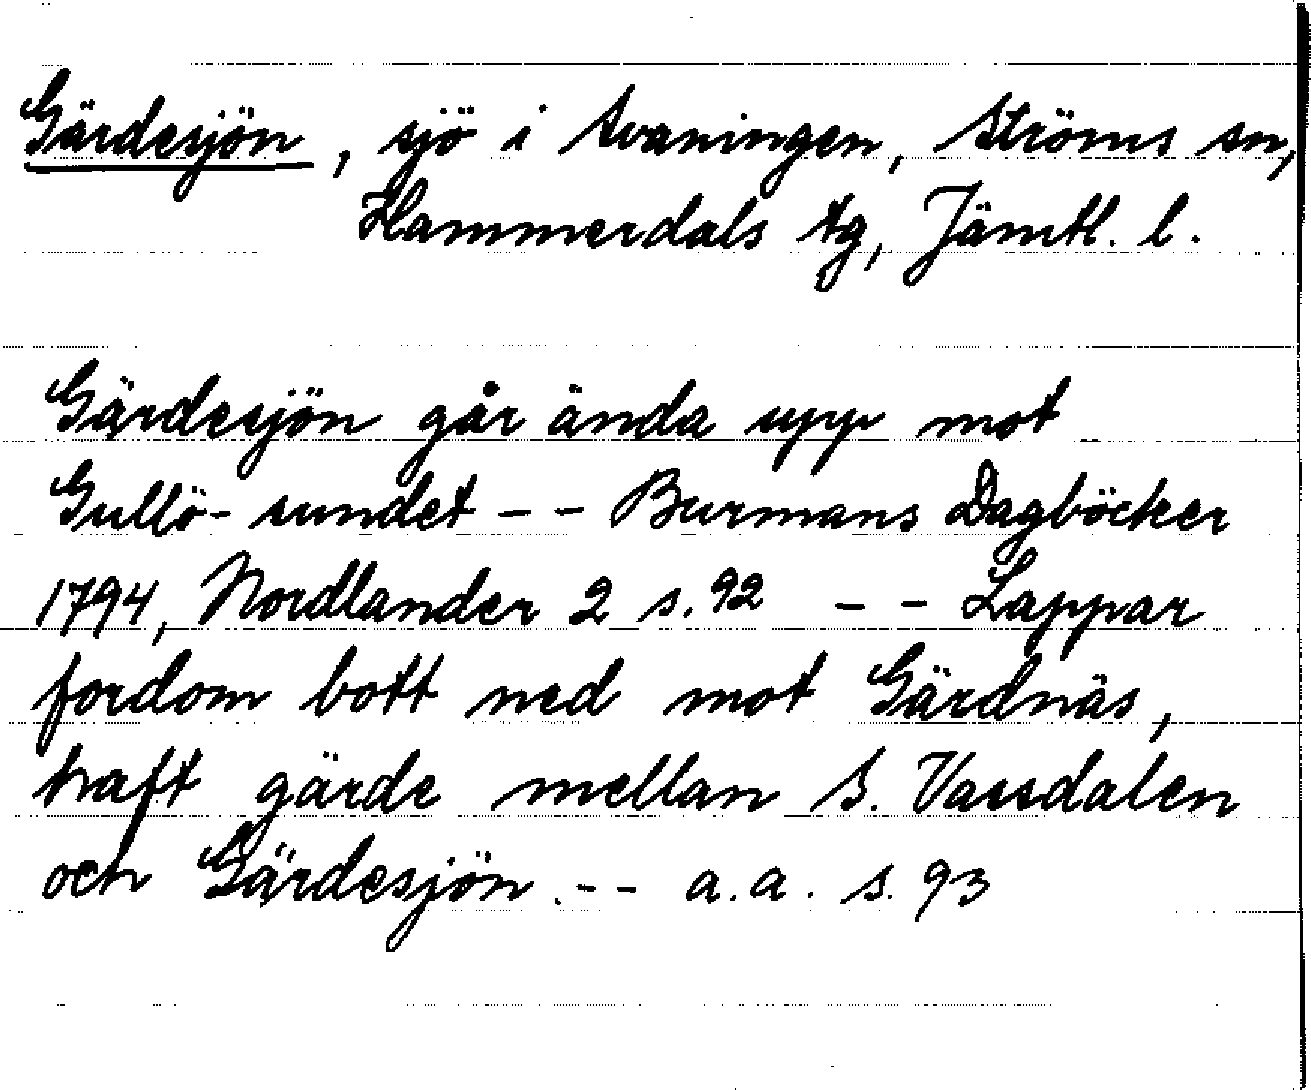 Gärdesjön, sjö i Svaningen, Ströms sn,
Hammerdals tg, Jämtl. l.
Gärdesjön går ända upp mot
Gullö-sundet - - Burmans Dagböcker
1794, Nordlander 2 s. 92 - - Lappar
fordom bott ned mot Gärdnäs,
haft gärde mellan S. Vassdalen
och Gärdesjön. - - a.a. s. 93